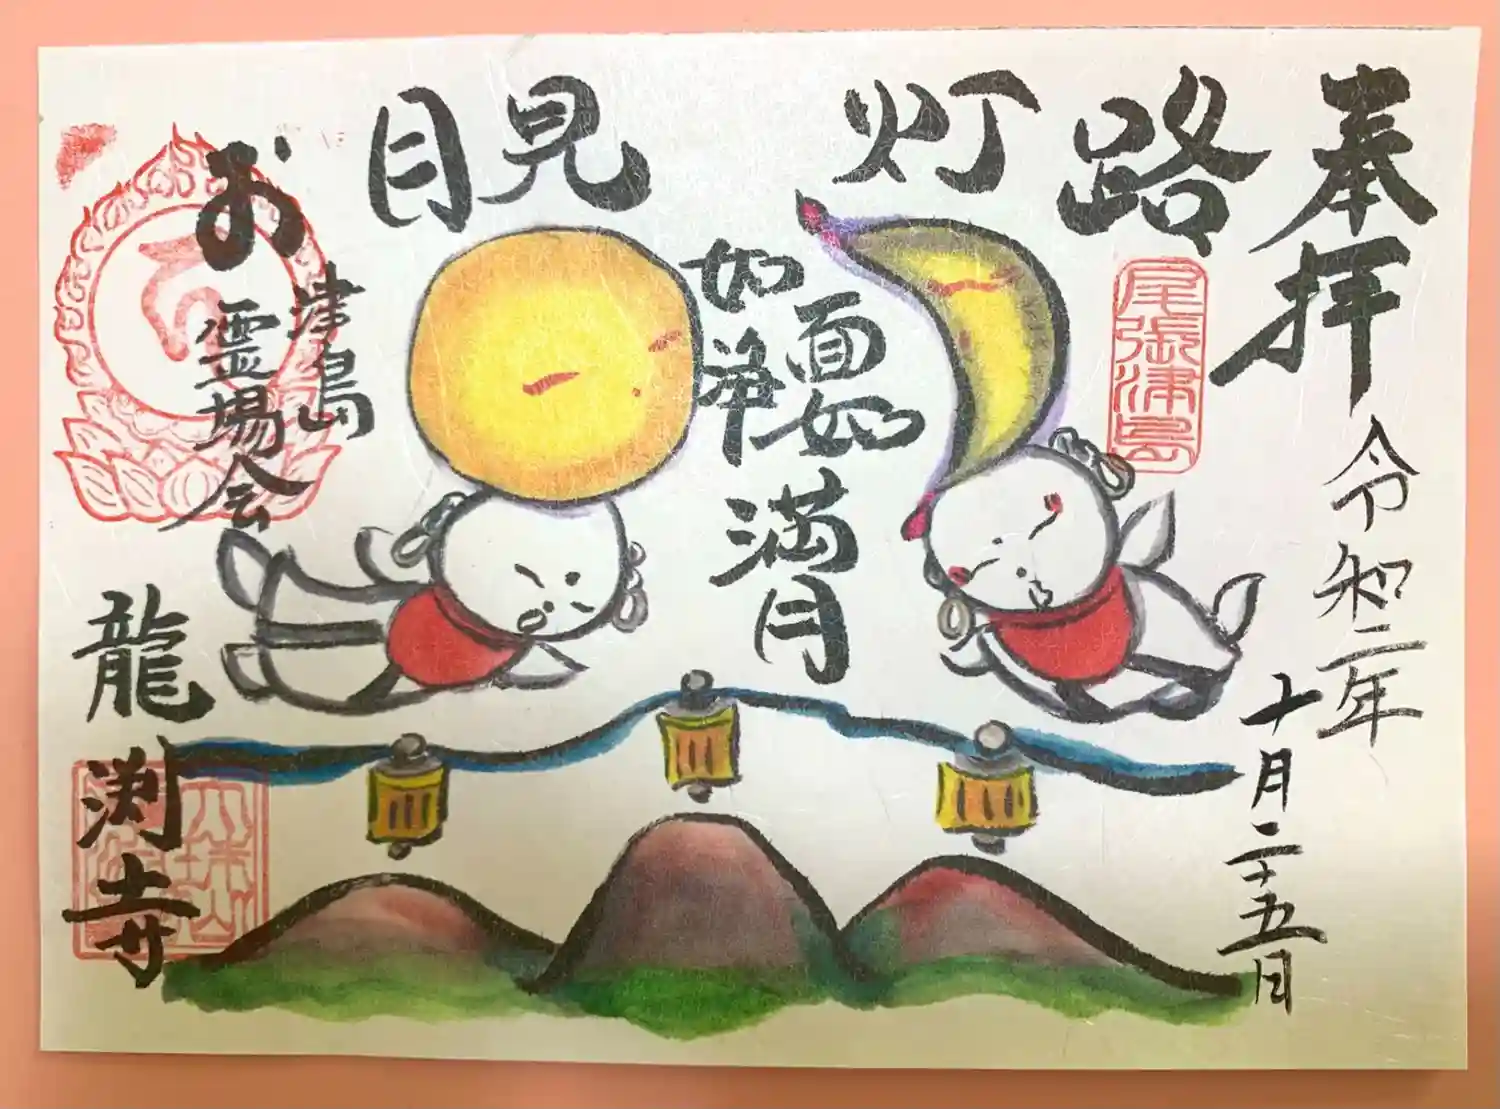 奉拝
令和二年
十月二十五日
尾張津島
お月見灯路
面如
如浄
満月
津島
霊場会
龍渕寺